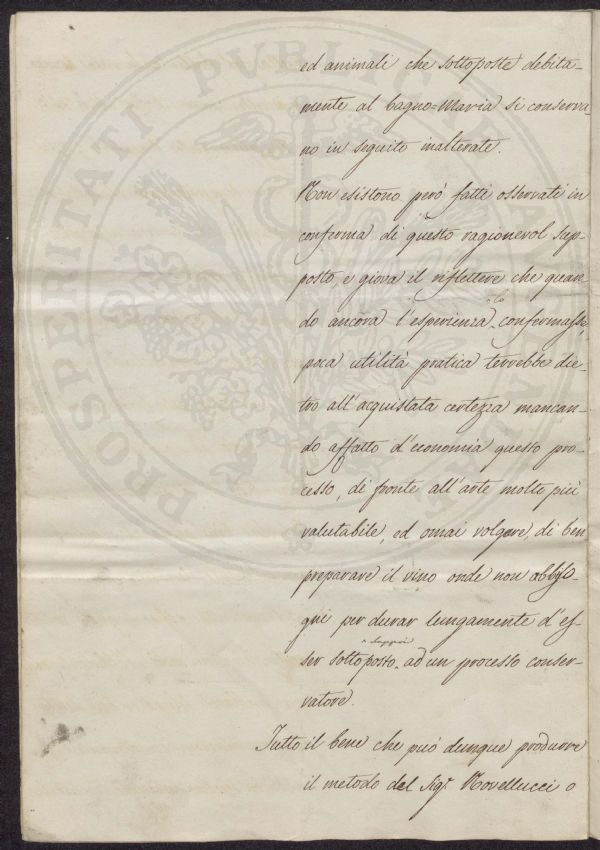 ed animali che sottoposte debita-
mente al bagno=Maria si conserva-
no in seguito inalterate.
Non esistono però fatti osservati in
conferma di questo ragionevol sup-
posto, e giova il riflettere che quan-
do ancora l'esperienza lo confermasse,
poca utilità pratica terrebbe die-
tro all'acquistata certezza mancan-
do affatto d'economia questo pro-
cesso, di fronte all'arte molto più
valutabile, ed omai volgare, di ben
preparare il vino onde non abbiso-
gni per durar lungamente d'es-
ser sottoposto ad un processo conser-
vatore.
Tutto il bene che può dunque produrre
il metodo del Sigr. Novellucci o
PROSPERITATI PUBLICAE